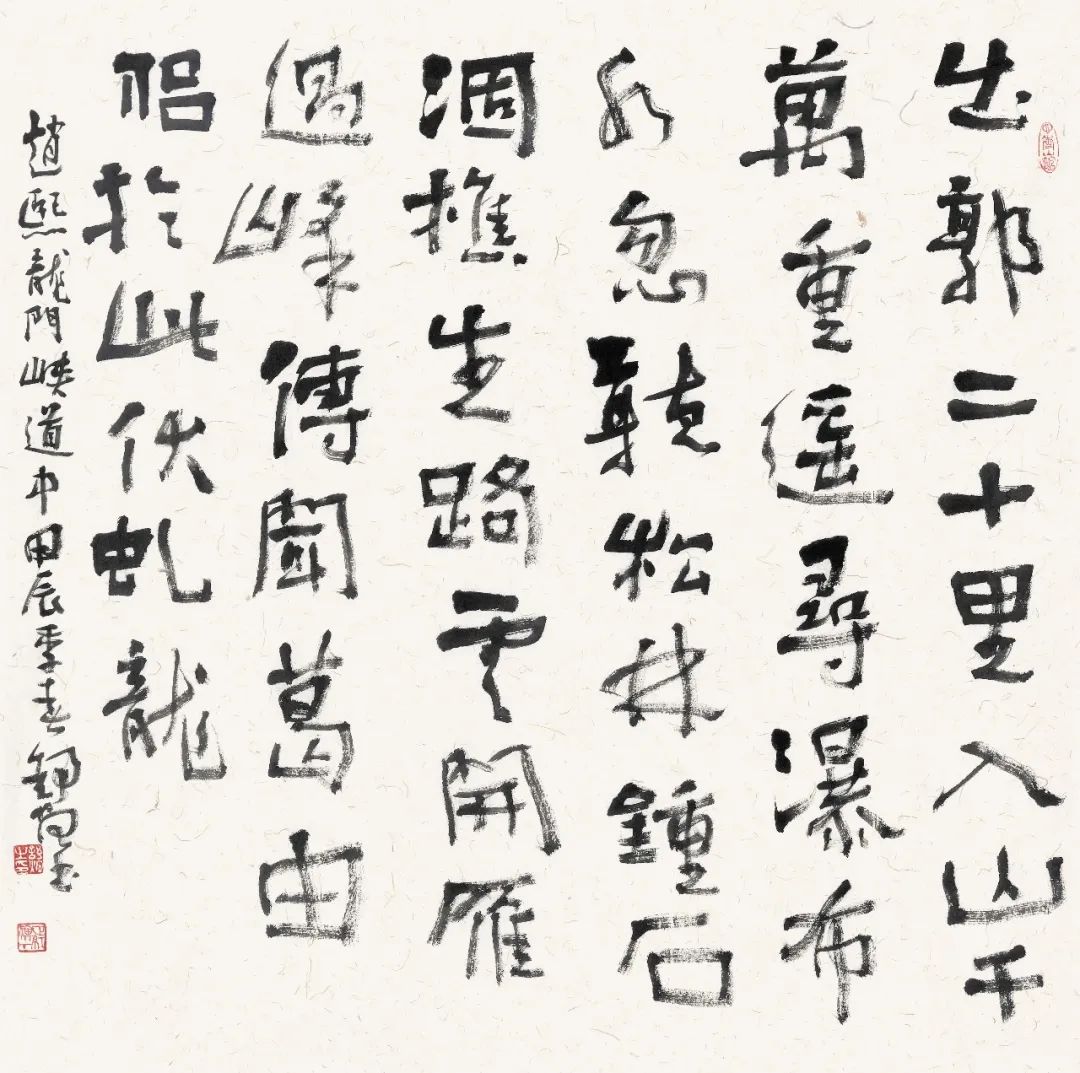 出郭二十里入山千
萬重遥尋瀑布
水忽聽松林鍾石
涸樵生路雲開雁
過峰傳聞葛由
侶於此伏虬龍
趙熙龍門峽道中甲辰季春